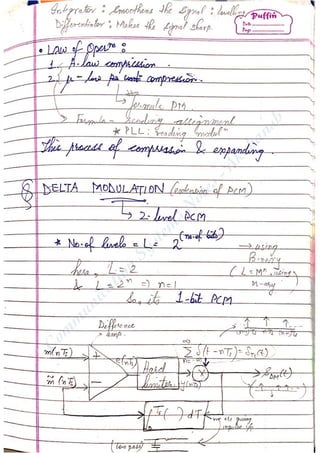 Integrator : Smoothens the Signal :
Differentiator : Makes the signal sharp.
Puffin
Date
Page
• Law of Operⁿ :
1. A-law compression
2. μ-law compression.
Formula PM.
Formula - reading assignment
* PLL : reading model"
This process of compression & expanding.
DELTA MODULATION (extension of PCM)
↳ 2-level PCM
* No. of levels = L = 2^(no. of bits)
→ using Binary
here, L = 2
(L = Mⁿ, using M-ary)
& L = 2ⁿ ⇒ n = 1
So, its 1-bit PCM
Difference amp.
m(nTs)
+
e(nTs)
Hard limiter
y(nTs)
X
∞ Σ n=-∞ δ(t - nTs) = δTs(t)
m̃(nTs)
-
∫( ) dT
we are giving impulse i/p
(low pass)